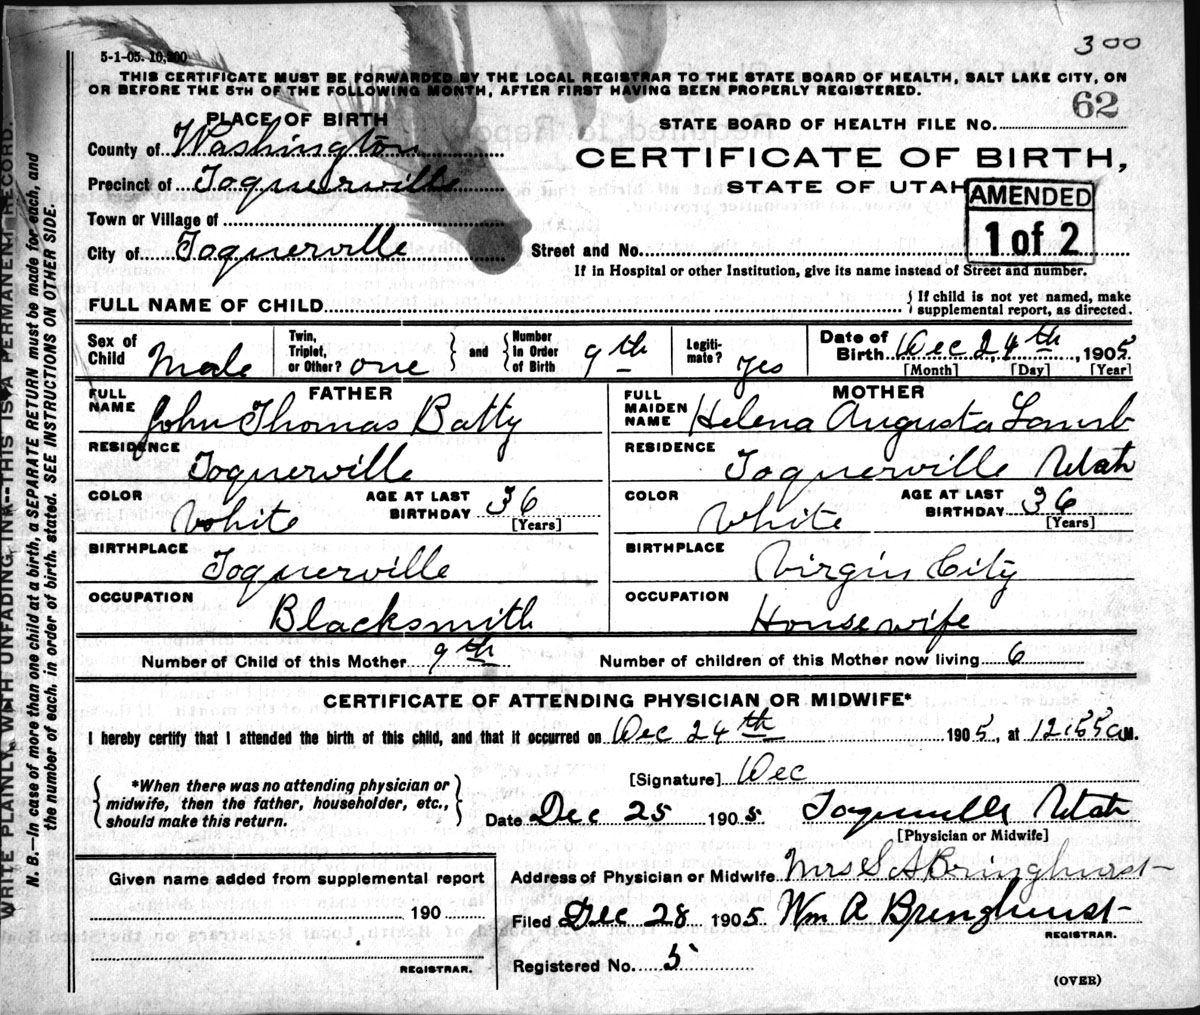 300
5-1-05. 10,200
THIS CERTIFICATE MUST BE FORWARDED BY THE LOCAL REGISTRAR TO THE STATE BOARD OF HEALTH, SALT LAKE CITY, ON
OR BEFORE THE 5TH OF THE FOLLOWING MONTH, AFTER FIRST HAVING BEEN PROPERLY REGISTERED.
62
PLACE OF BIRTH
STATE BOARD OF HEALTH FILE NO.
County of Washington
CERTIFICATE OF BIRTH,
Precinct of Toquerville
STATE OF UTAH
AMENDED
1 of 2
Town or Village of
City of Toquerville
Street and No.
If in Hospital or other Institution, give its name instead of Street and number.
FULL NAME OF CHILD
If child is not yet named, make
supplemental report, as directed.
Sex of Child Male
Twin, Triplet, or Other? one
and
Number in Order of Birth 9th
Legiti-mate? Yes
Date of Birth Dec 24th, 1905
[Month] [Day] [Year]
FATHER
FULL NAME John Thomas Batty
RESIDENCE
Toquerville
COLOR White
AGE AT LAST BIRTHDAY 36
[Years]
BIRTHPLACE
Toquerville
OCCUPATION
Blacksmith
MOTHER
FULL MAIDEN NAME Helena Augusta Lamb
RESIDENCE
Toquerville Utah
COLOR White
AGE AT LAST BIRTHDAY 36
[Years]
BIRTHPLACE
Virgin City
OCCUPATION
Housewife
Number of Child of this Mother 9th
Number of children of this Mother now living 6
CERTIFICATE OF ATTENDING PHYSICIAN OR MIDWIFE*
I hereby certify that I attended the birth of this child, and that it occurred on Dec 24th 1905, at 12:55 a M.
*When there was no attending physician or
midwife, then the father, householder, etc.,
should make this return.
[Signature] Dec
Date Dec 25 1905 Toquerville Utah
[Physician or Midwife]
Given name added from supplemental report
190
REGISTRAR.
Address of Physician or Midwife Mrs S A Bringhurst
Filed Dec 28 1905. Wm A Bringhurst
REGISTRAR.
Registered No. 5
(OVER)
WRITE PLAINLY, WITH UNFADING INK--THIS IS A PERMANENT RECORD.
N. B.—In case of more than one child at a birth, a SEPARATE RETURN must be made for each, and
the number of each, in order of birth, stated. SEE INSTRUCTIONS ON OTHER SIDE.